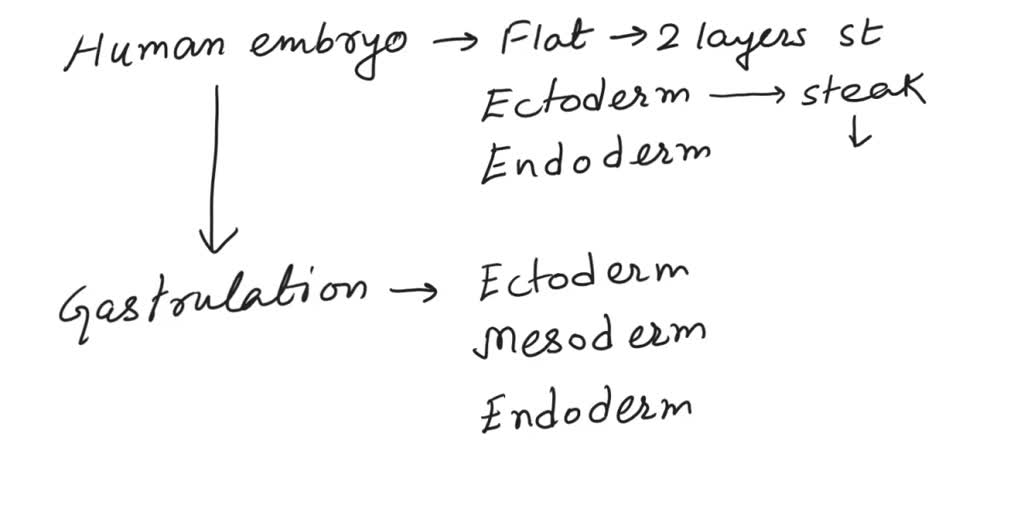 Human embryo → Flat → 2 layers st
Ectoderm → steak
↓
Endoderm
↓
Gastrulation → Ectoderm
Mesoderm
Endoderm